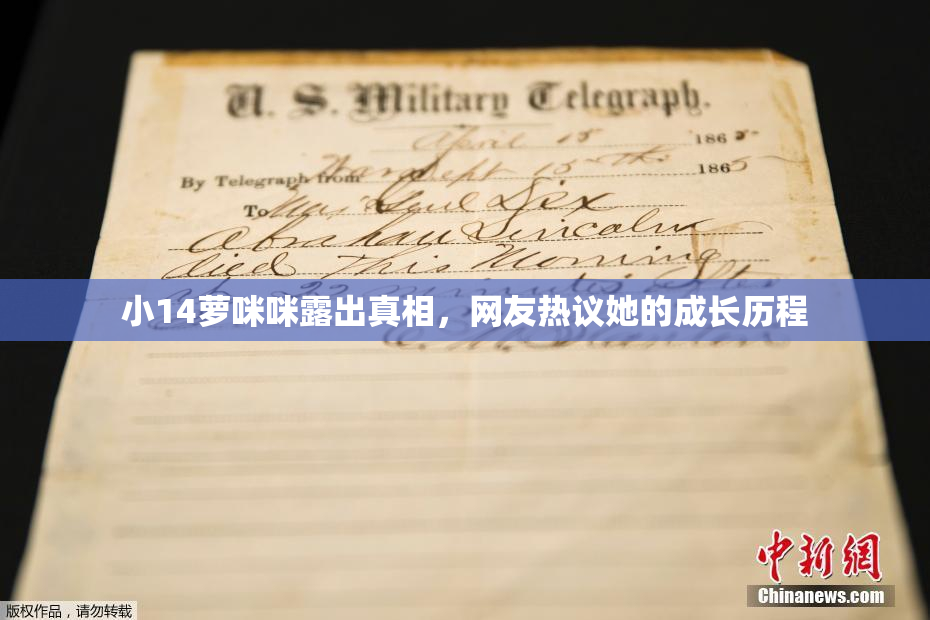 U. S. Military Telegraph.
April 15 1865
By Telegraph from War Dept 15th 1865
To Maj Genl Dix
Abraham Lincoln
died This Morning
小14萝咪咪露出真相，网友热议她的成长历程
中新網
Chinanews.com
版权作品，请勿转载